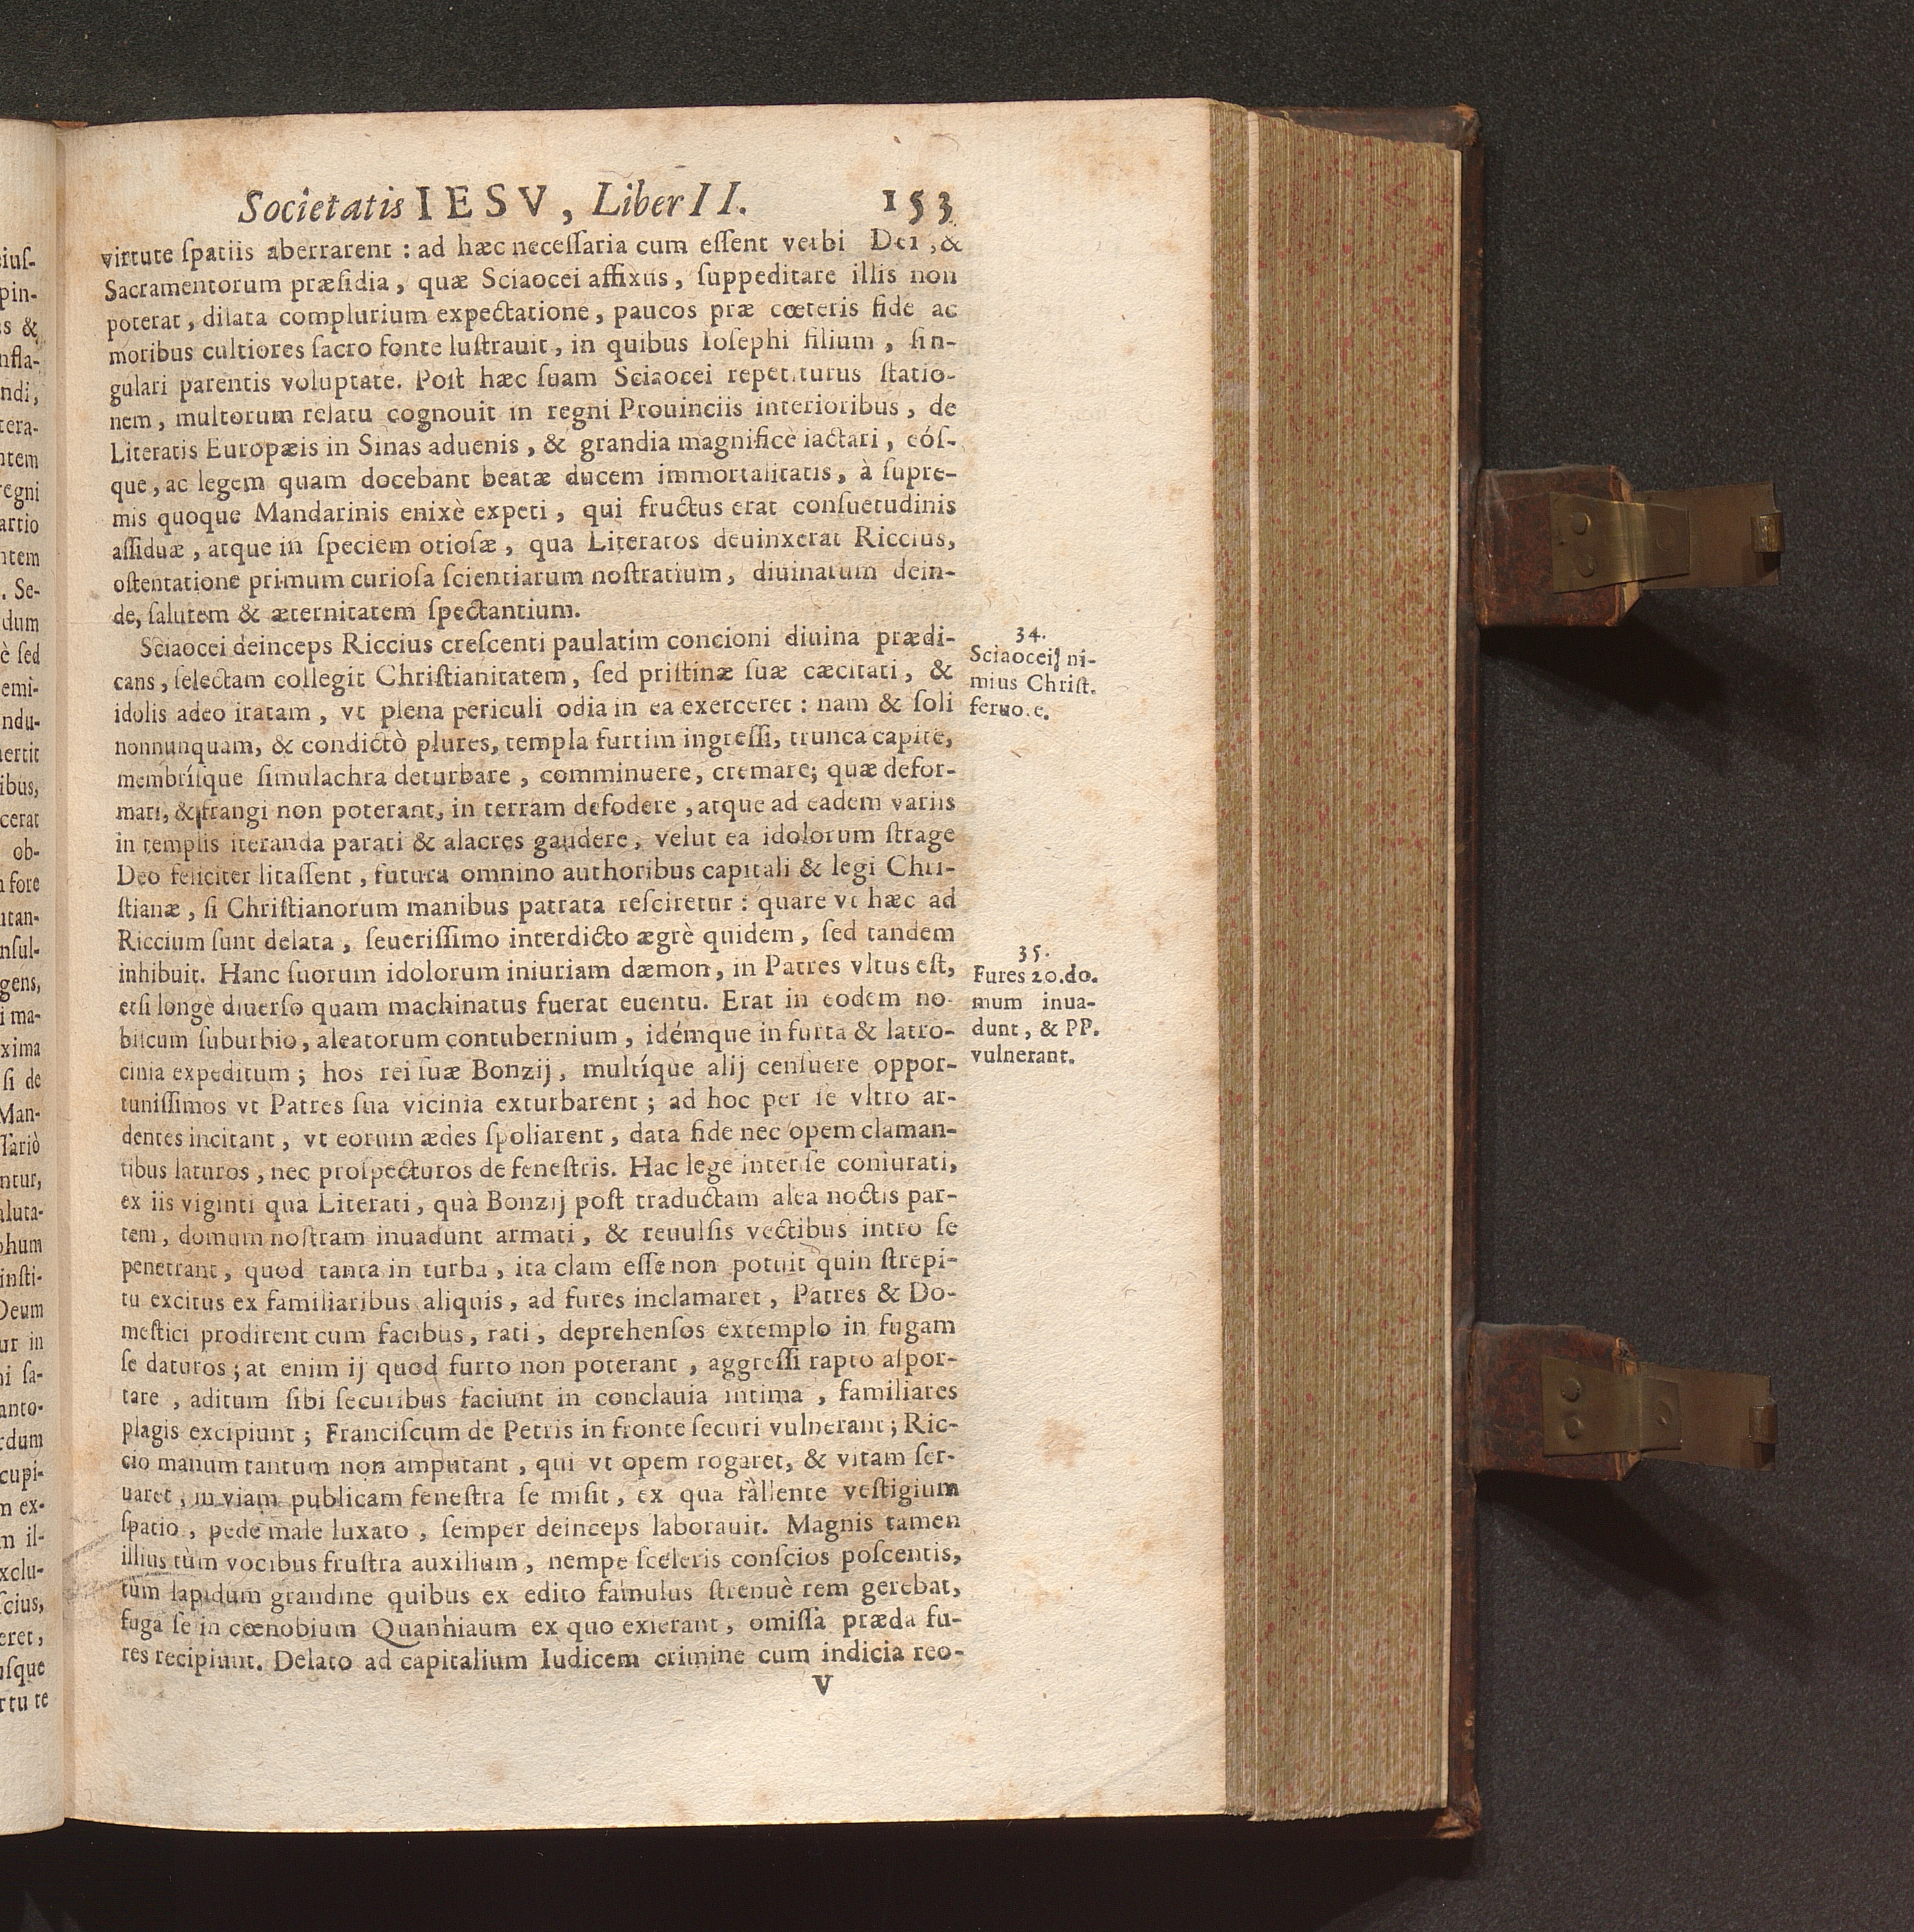 Societatis IESV, Liber II. 153
virtute ſpatiis aberrarent : ad hæc neceſſaria cum eſſent verbi Dei , &
Sacramentorum præſidia, quæ Sciaocei affixus, ſuppeditare illis non
poterat, dilata complurium expectatione, paucos præ cœteris fide ac
moribus cultiores ſacro fonte luſtrauit, in quibus Ioſephi filium, ſin-
gulari parentis voluptate. Poſt hæc ſuam Sciaocei repetiturus ſtatio-
nem, multorum relatu cognouit in regni Prouinciis interioribus, de
Literatis Europæis in Sinas aduenis, & grandia magnificè iactari, eóſ-
que, ac legem quam docebant beatæ ducem immortalitatis, à ſupre-
mis quoque Mandarinis enixè expeti, qui fructus erat conſuetudinis
aſſiduæ, atque in ſpeciem otioſæ, qua Literatos deuinxerat Riccius,
oſtentatione primum curioſa ſcientiarum noſtratium, diuinarum dein-
de, ſalutem & æternitatem ſpectantium.
Sciaocei deinceps Riccius creſcenti paulatim concioni diuina prædi-
cans, ſelectam collegit Chriſtianitatem, ſed priſtinæ ſuæ cæcitati, &
idolis adeo iratam, vt plena periculi odia in ea exerceret : nam & ſoli
nonnunquam, & condictò plures, templa furtim ingreſſi, trunca capite,
membríſque ſimulachra deturbare, comminuere, cremare; quæ defor-
mari, & frangi non poterant, in terram defodere, atque ad eadem variis
in templis iteranda parati & alacres gaudere, velut ea idolorum ſtrage
Deo feliciter litaſſent, futura omnino authoribus capitali & legi Chri-
ſtianæ, ſi Chriſtianorum manibus patrata reſciretur : quare vt hæc ad
Riccium ſunt delata, ſeueriſſimo interdicto ægrè quidem, ſed tandem
inhibuit. Hanc ſuorum idolorum iniuriam dæmon, in Patres vltus eſt,
etſi longè diuerſo quam machinatus fuerat euentu. Erat in eodem no-
biſcum ſuburbio, aleatorum contubernium, idémque in furta & latro-
cinia expeditum; hos rei ſuæ Bonzij, multíque alij cenſuere oppor-
tuniſſimos vt Patres ſua vicinia exturbarent; ad hoc per ſe vltro ar-
dentes incitant, vt eorum ædes ſpoliarent, data fide nec opem claman-
tibus laturos, nec proſpecturos de feneſtris. Hac lege inter ſe coniurati,
ex iis viginti qua Literati, quà Bonzij poſt traductam alea noctis par-
tem, domum noſtram inuadunt armati, & reuulſis vectibus intro ſe
penetrant, quod tanta in turba, ita clam eſſe non potuit quin ſtrepi-
tu excitus ex familiaribus aliquis, ad fures inclamaret, Patres & Do-
meſtici prodirent cum facibus, rati, deprehenſos extemplo in fugam
ſe daturos; at enim ij quod furto non poterant, aggreſſi rapto aſpor-
tare, aditum ſibi ſecuribus faciunt in conclauia intima, familiares
plagis excipiunt; Franciſcum de Petris in fronte ſecuri vulnerant; Ric-
cio manum tantum non amputant, qui vt opem rogaret, & vitam ſer-
uaret, in viam publicam feneſtra ſe miſit, ex qua fallente veſtigium
ſpatio, pede male luxato, ſemper deinceps laborauit. Magnis tamen
illius tùm vocibus fruſtra auxilium, nempe ſceleris conſcios poſcentis,
tùm lapidum grandine quibus ex edito famulus ſtrenuè rem gerebat,
fuga ſe in cœnobium Quanhiaum ex quo exierant, omiſſa præda fu-
res recipiunt. Delato ad capitalium Iudicem crimine cum indicia reo-
V
34.
Sciaoceij ni-
mius Chriſt.
feruo.e.
35.
Fures 20. do.
mum inua-
dunt, & PP.
vulnerant.